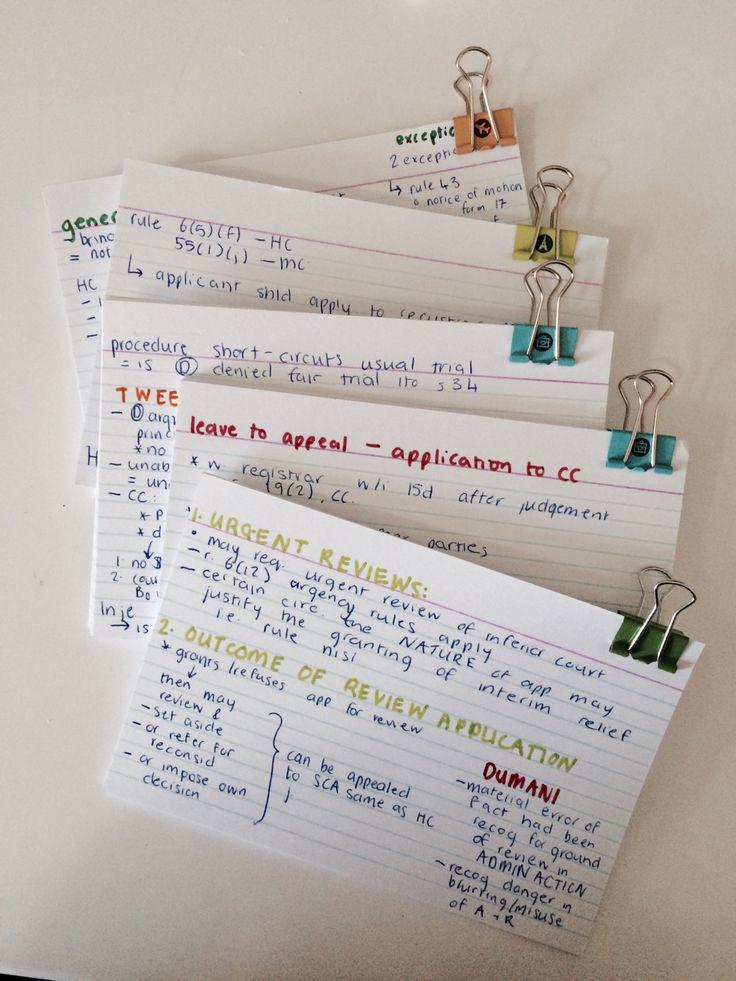 exceptio
2 exceptio
↳ rule 43
a notice of motion
form 17
gener
= not
HC
H
rule 6(5)(f) – HC
55(1)(j) – MC
↳ applicant shld apply to
procedure short-circuts usual trial
= is Ⓓ denied fair trial ito s 34
TWEE
– Ⓓ arg
princ
* no
– unab
= un
– CC:
* p
* d
↓
1. no
2. cou
Inje
→ is
leave to appeal – application to CC
* w registrar w/i 15d after judgement
19(2), CC.
parties
1. URGENT REVIEWS:
• may req. urgent review of inferior court
– r. 6(12) argency rules apply
– certain circ. the NATURE of app may
justify the granting of interim relief
i.e. rule nisi
2. OUTCOME OF REVIEW APPLICATION
* grants/refuses app for review
↓
then may
review &
– set aside
– or refer for
reconsid
– or impose own
decision
can be appealed
to SCA same as HC
DUMANI
– material error of
fact had been
recog for ground
of review in
ADMIN ACTION
– recog danger in
blurring/misuse
of A + R